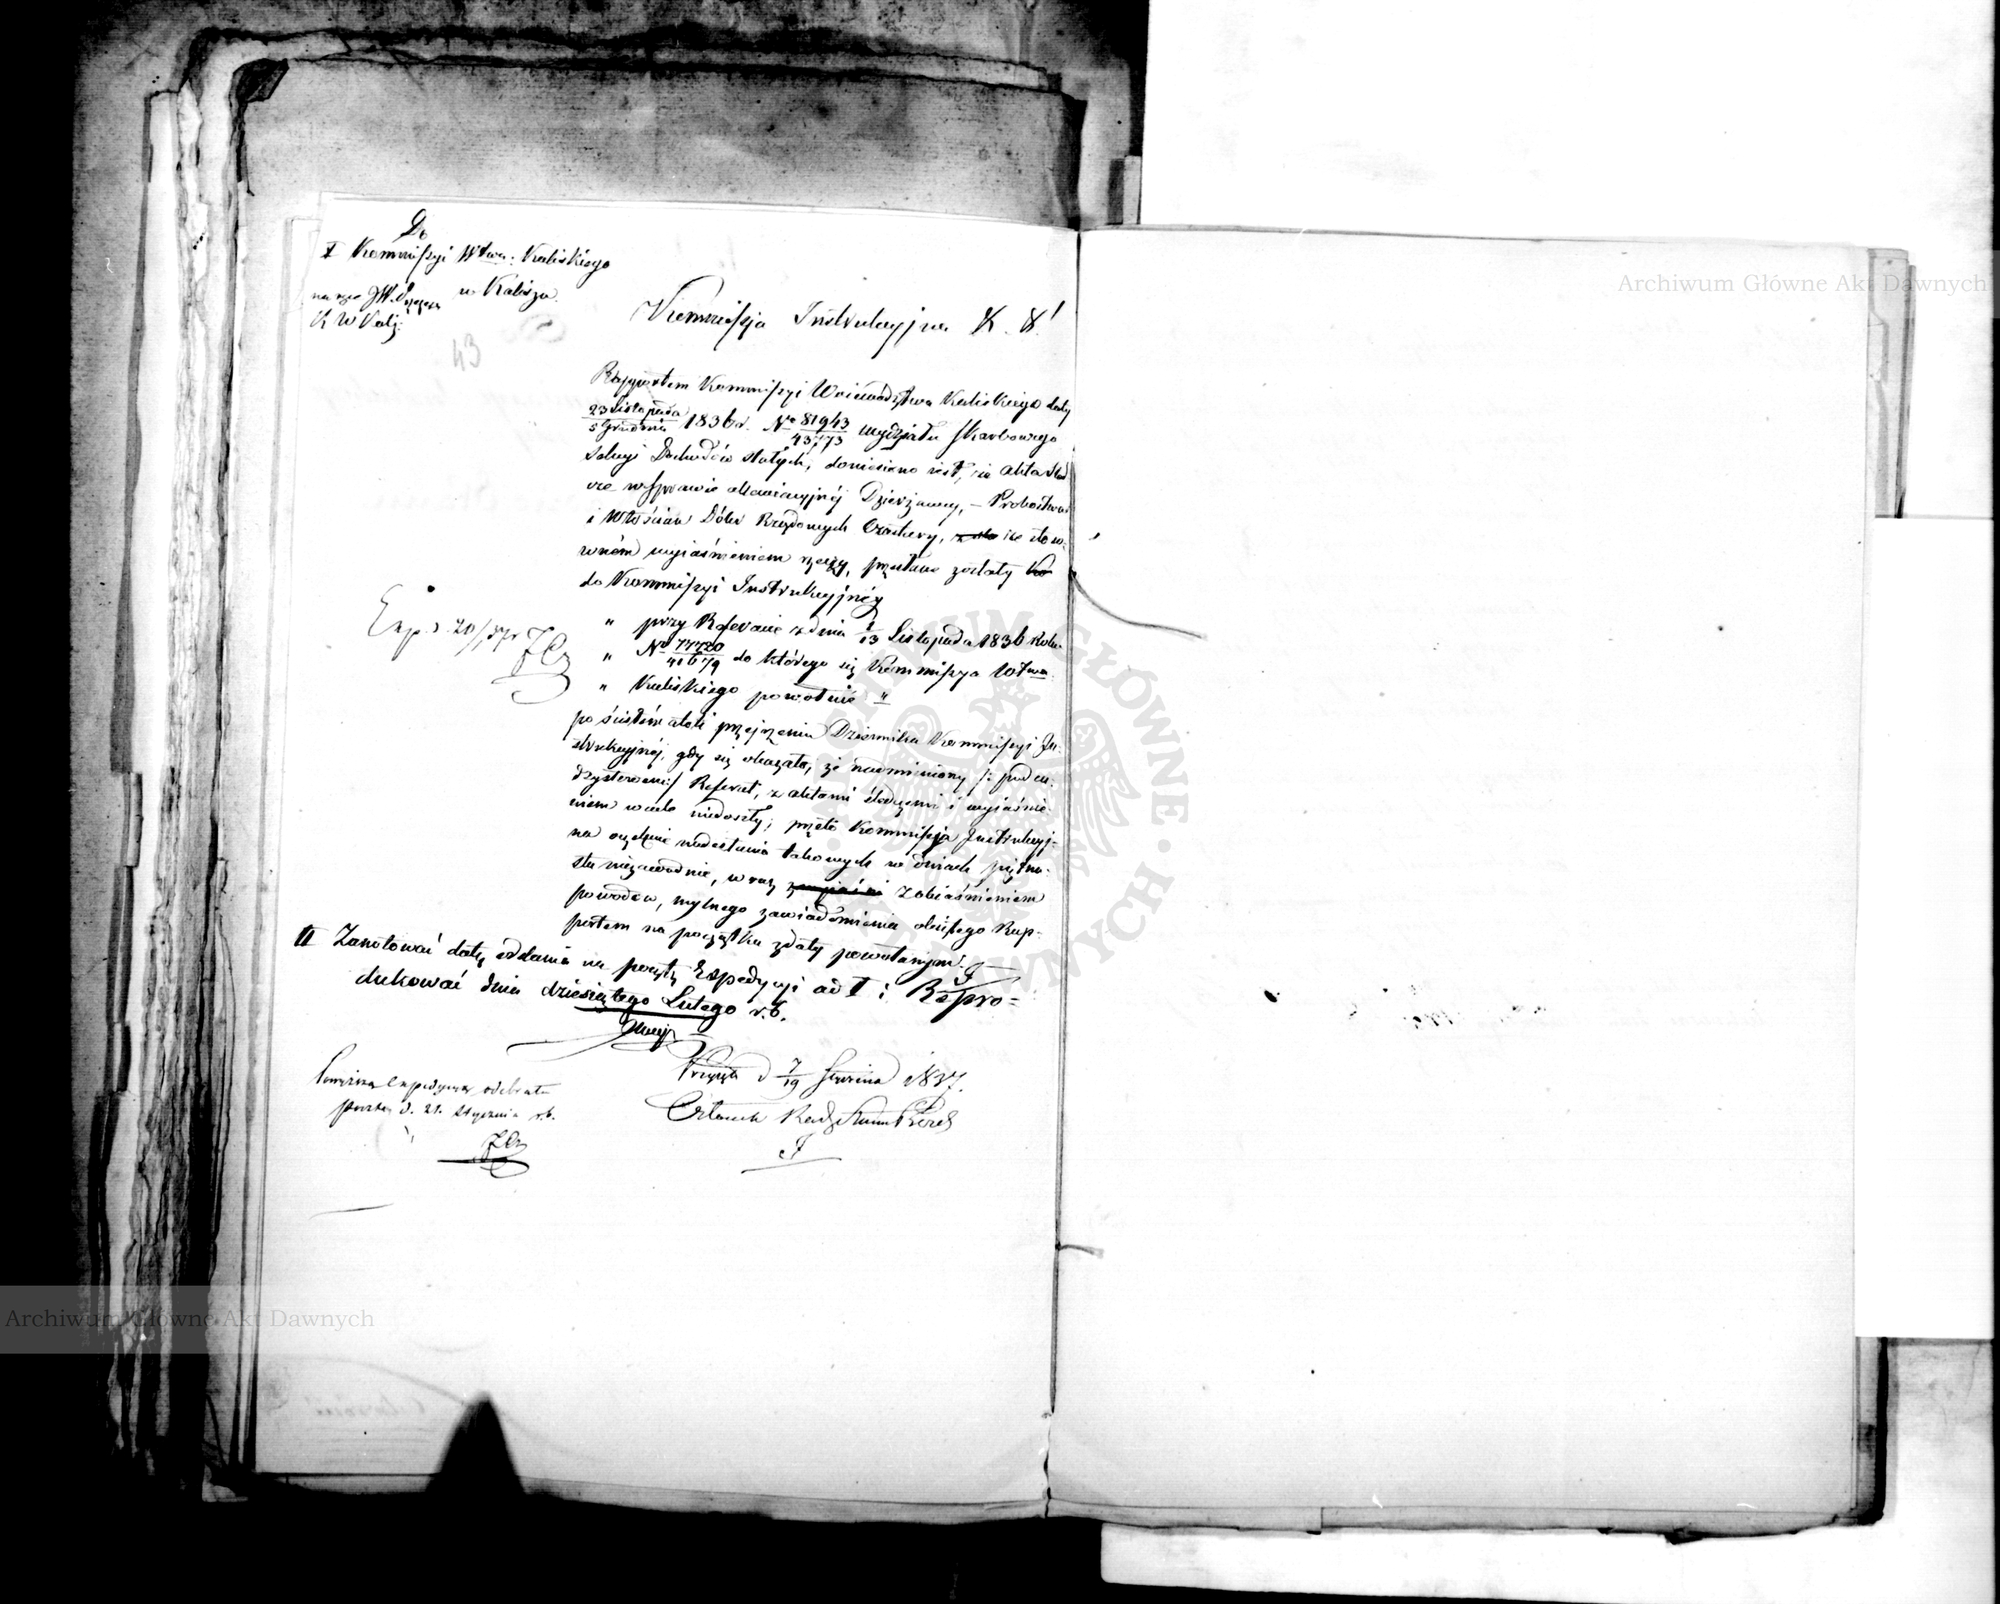 Do
I Kommissyi Wtwa: Kaliskiego
w Kaliszu.
na ręce JW. Prezesa
K W Kalj:
43
Kommissja Instrukcyjna K. K!
Rapportem Kommissyi Woiewództwa Kaliskiego daty
23 Listopada / 5 Grudnia 1836 r. No 81943/43773 wydziału skarbowego
Sekcyi Dochodów stałych, doniesiono iest, że akta śled
cze w sprawie Dzierżawcy, – Probostwa
i Włościan Dóbr Rządowych Czastary, ze stow:
wném wyiaśnieniem rzeczy, przesłane zostały
do Kommissyi Instrukcyjnéy
" przy Referacie z dnia 1/13 Listopada 1836 roku
" No 77720/41679 do którego się Kommissya Wtwa
" Kaliskiego powołuie "
po ścisłém przejrzeniu Dziennika Kommissyi In:
strukcyjnéj, gdy się okazało, że nadmieniony /: pod cu:
dzysłowem:/ Referat, z aktami śledczemi i wyiaśnie:
niem wcale niedoszły; przeto Kommissja Instrukcyj:
na oczekuie nadesłania takowych w dniach piętna:
stu niezawodnie, wraz z obiaśnieniem
powodów, mylnego zawiadomienia Rap:
portem na początku z daty powołanym.
II Zanotować datę oddania na pocztę Expedycyi ad I i Repro=
dukować dnia dziesiątego Lutego r. b.
Exp. d. 20/1 37 r
d 7/19 Stycznia 1837.
Członek Radzca Stanu
Powyższą Expedycyą odebrała
poczta d. 21. Stycznia r. b.
Archiwum Główne Akt Dawnych
Archiwum Główne Akt Dawnych
ARCHIWUM GŁÓWNE AKT DAWNYCH